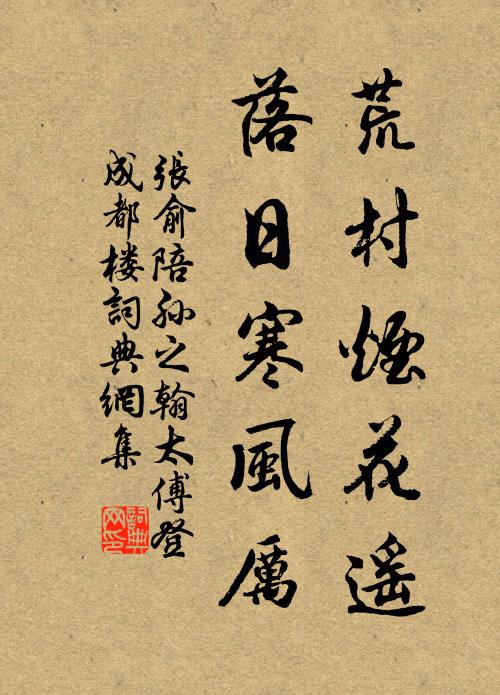 荒村煙花遥
落日寒風厲
張俞陪孙之翰太傅登
成都楼詞典網集
詞典
网印